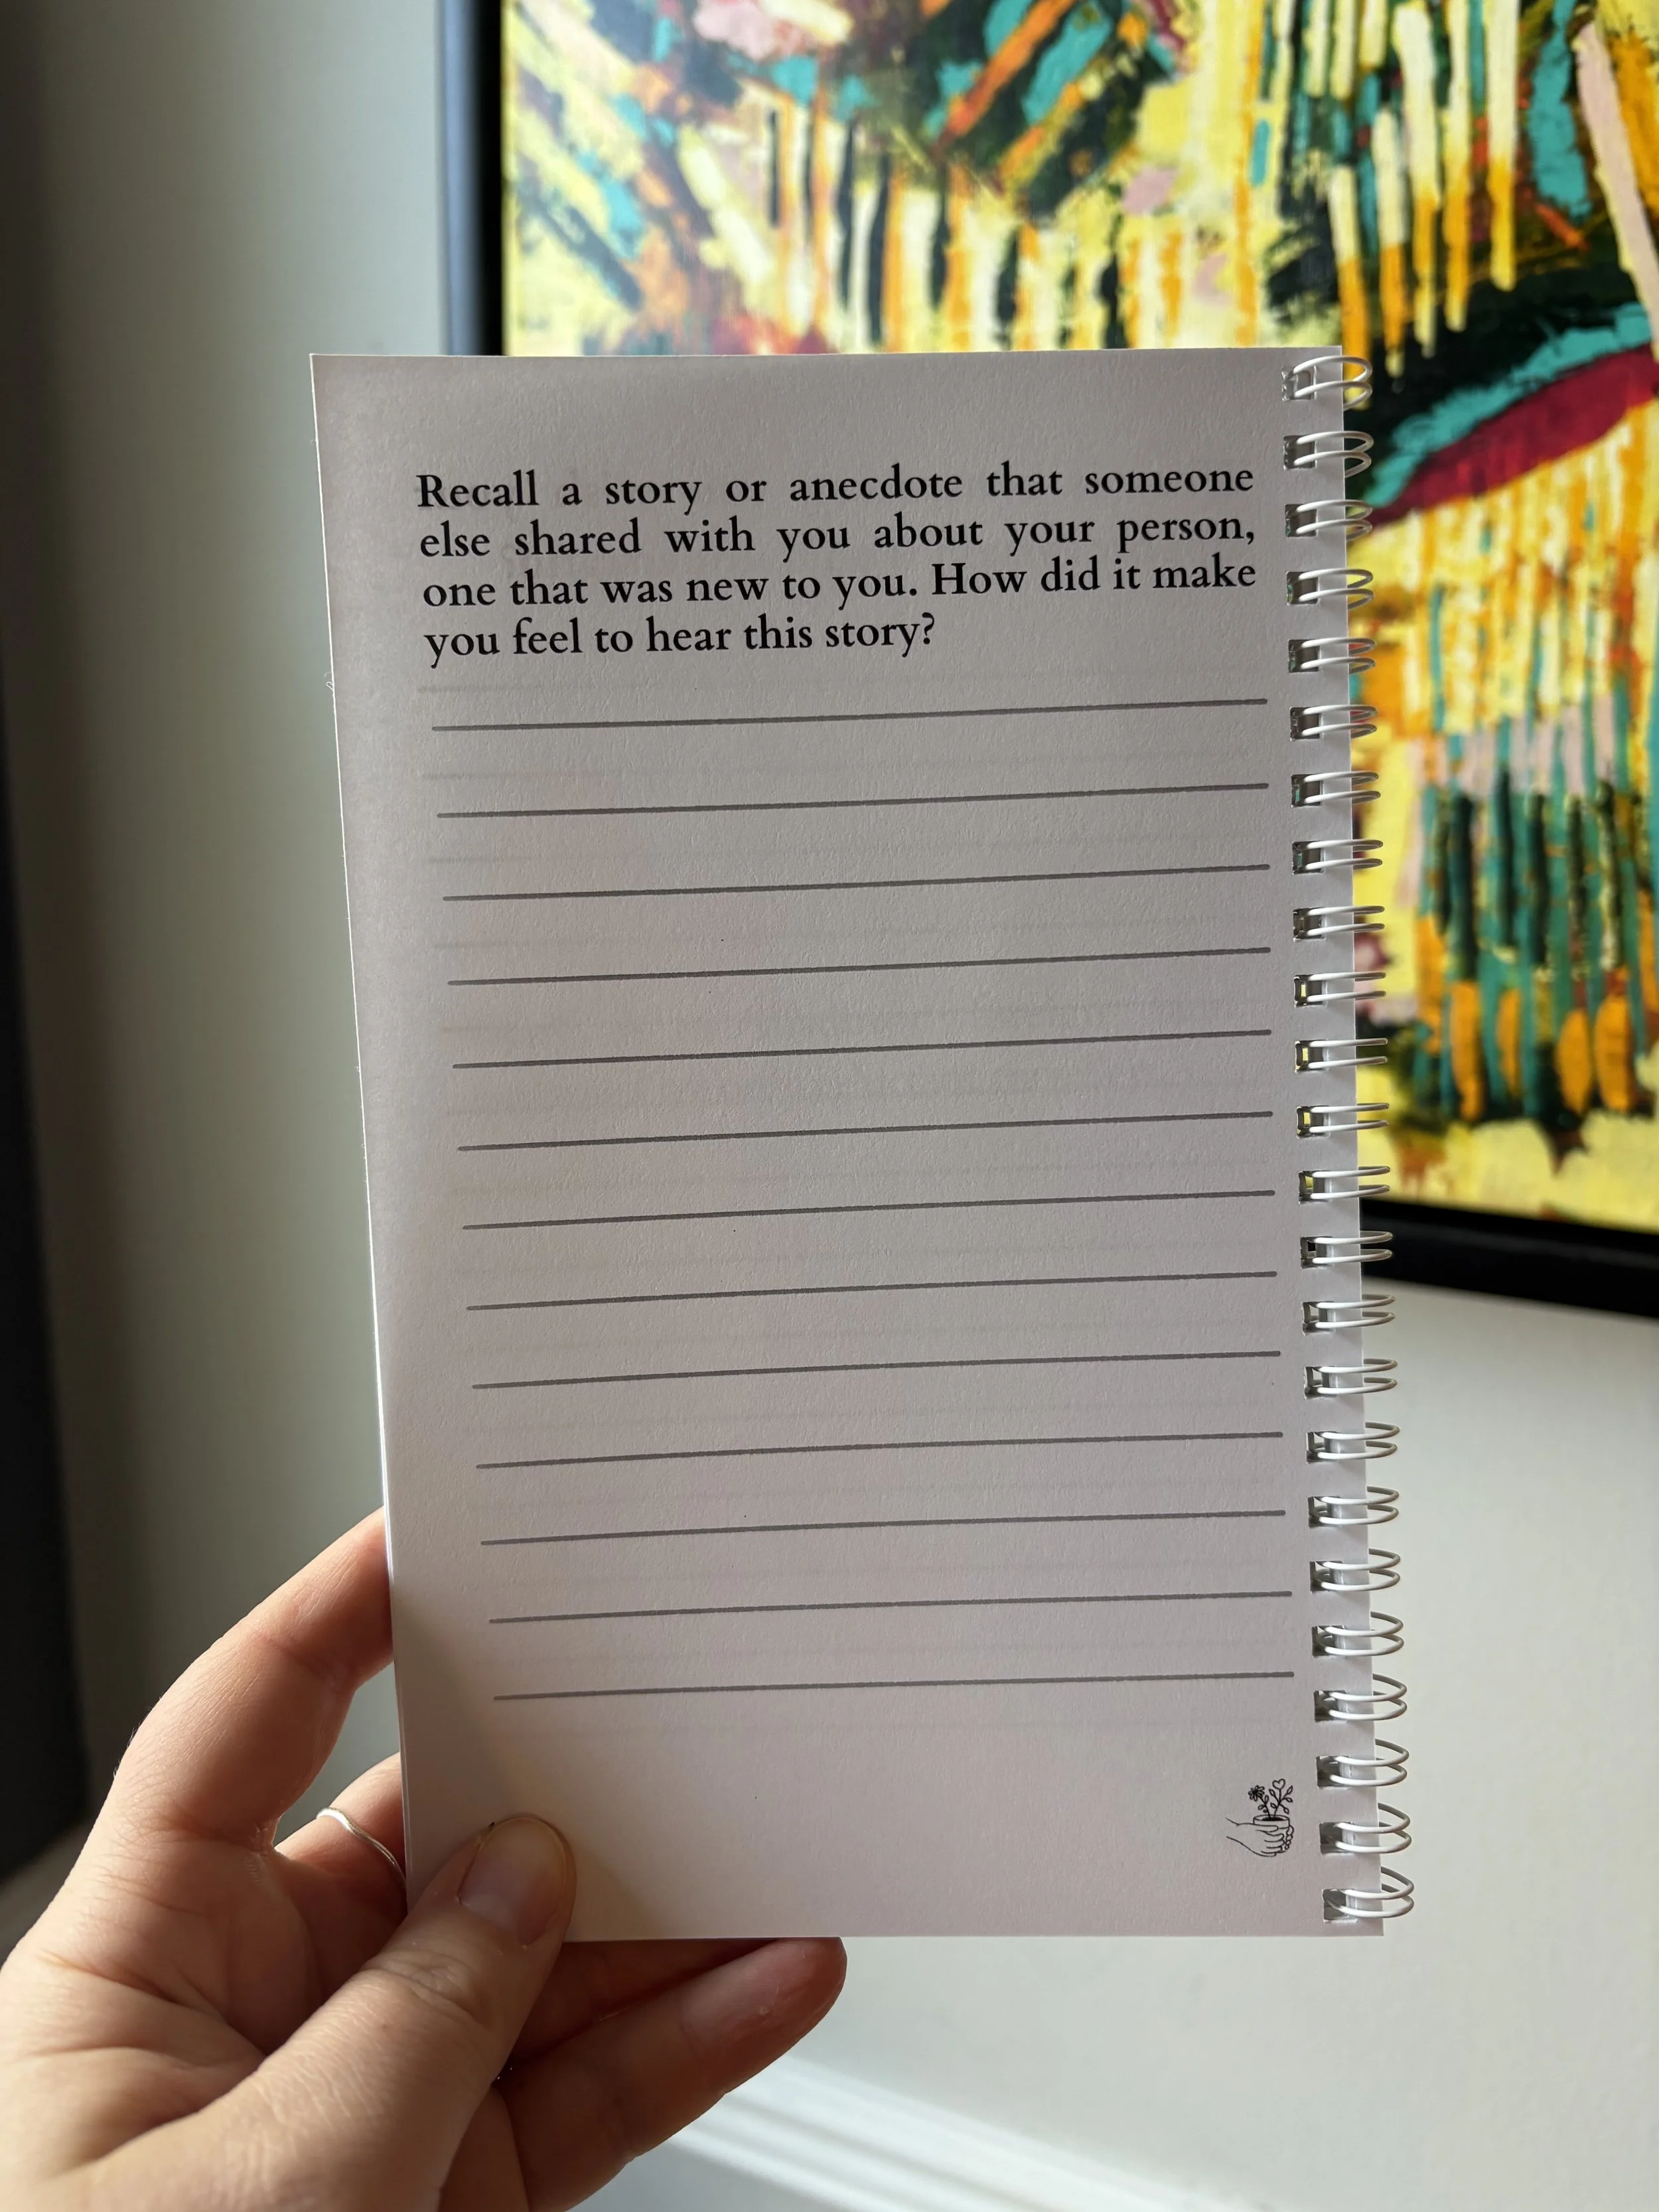 Recall a story or anecdote that someone
else shared with you about your person,
one that was new to you. How did it make
you feel to hear this story?